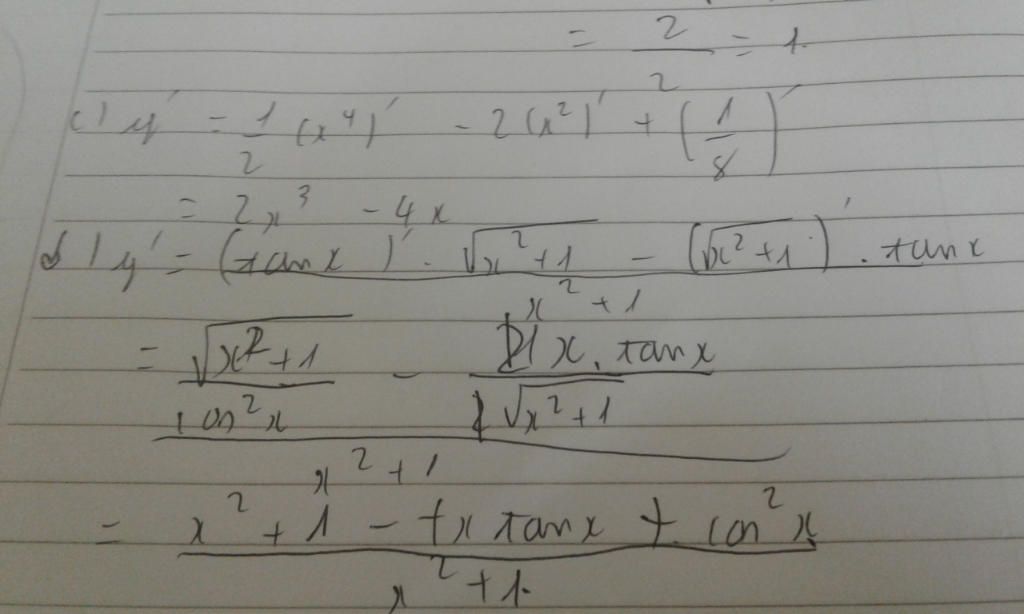 = 2/2 = 1.
c) y' = 1/2 (x⁴)' - 2(x²)' + (1/8)'
= 2x³ - 4x
d) y' = ((tan x)' . √(x²+1) - (√(x²+1))' . tan x) / (x²+1)
= (√(x²+1) / cos²x - x . tan x / √(x²+1)) / (x²+1)
= (x²+1 - x tan x . cos²x) / (x²+1)